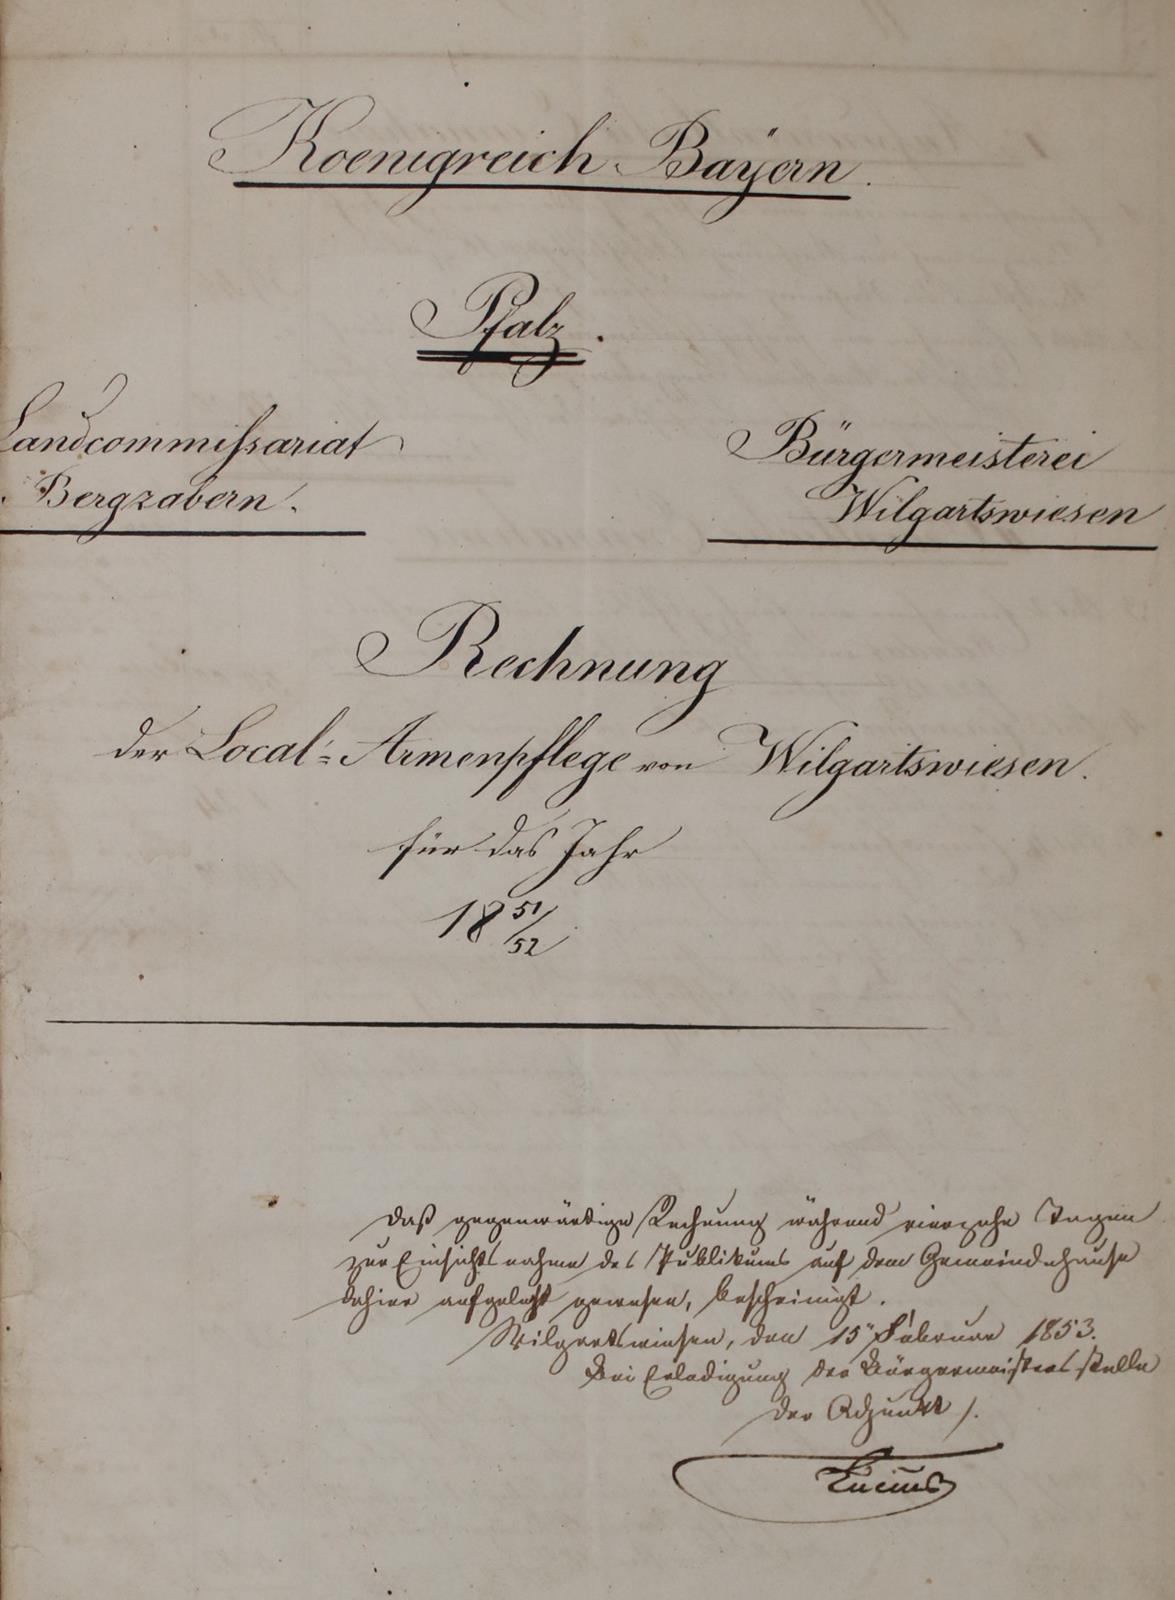 Koenigreich Bayern.
Pfalz.
Landcommißariat
Bergzabern.
Bürgermeisterei
Wilgartswiesen
Rechnung
der Local-Armenpflege von Wilgartswiesen.
für das Jahr
18 51/52
Daß gegenwärtige Rechnung während vierzehn Tagen
zur Einsichtsnahme des Publikums auf dem Gemeindehause
dahier aufgelegt gewesen, bescheinigt.
Wilgartswiesen, den 15n Februar 1853.
Bei Erledigung der Bürgermeistersstelle
der Adjunkt /.
Lucius